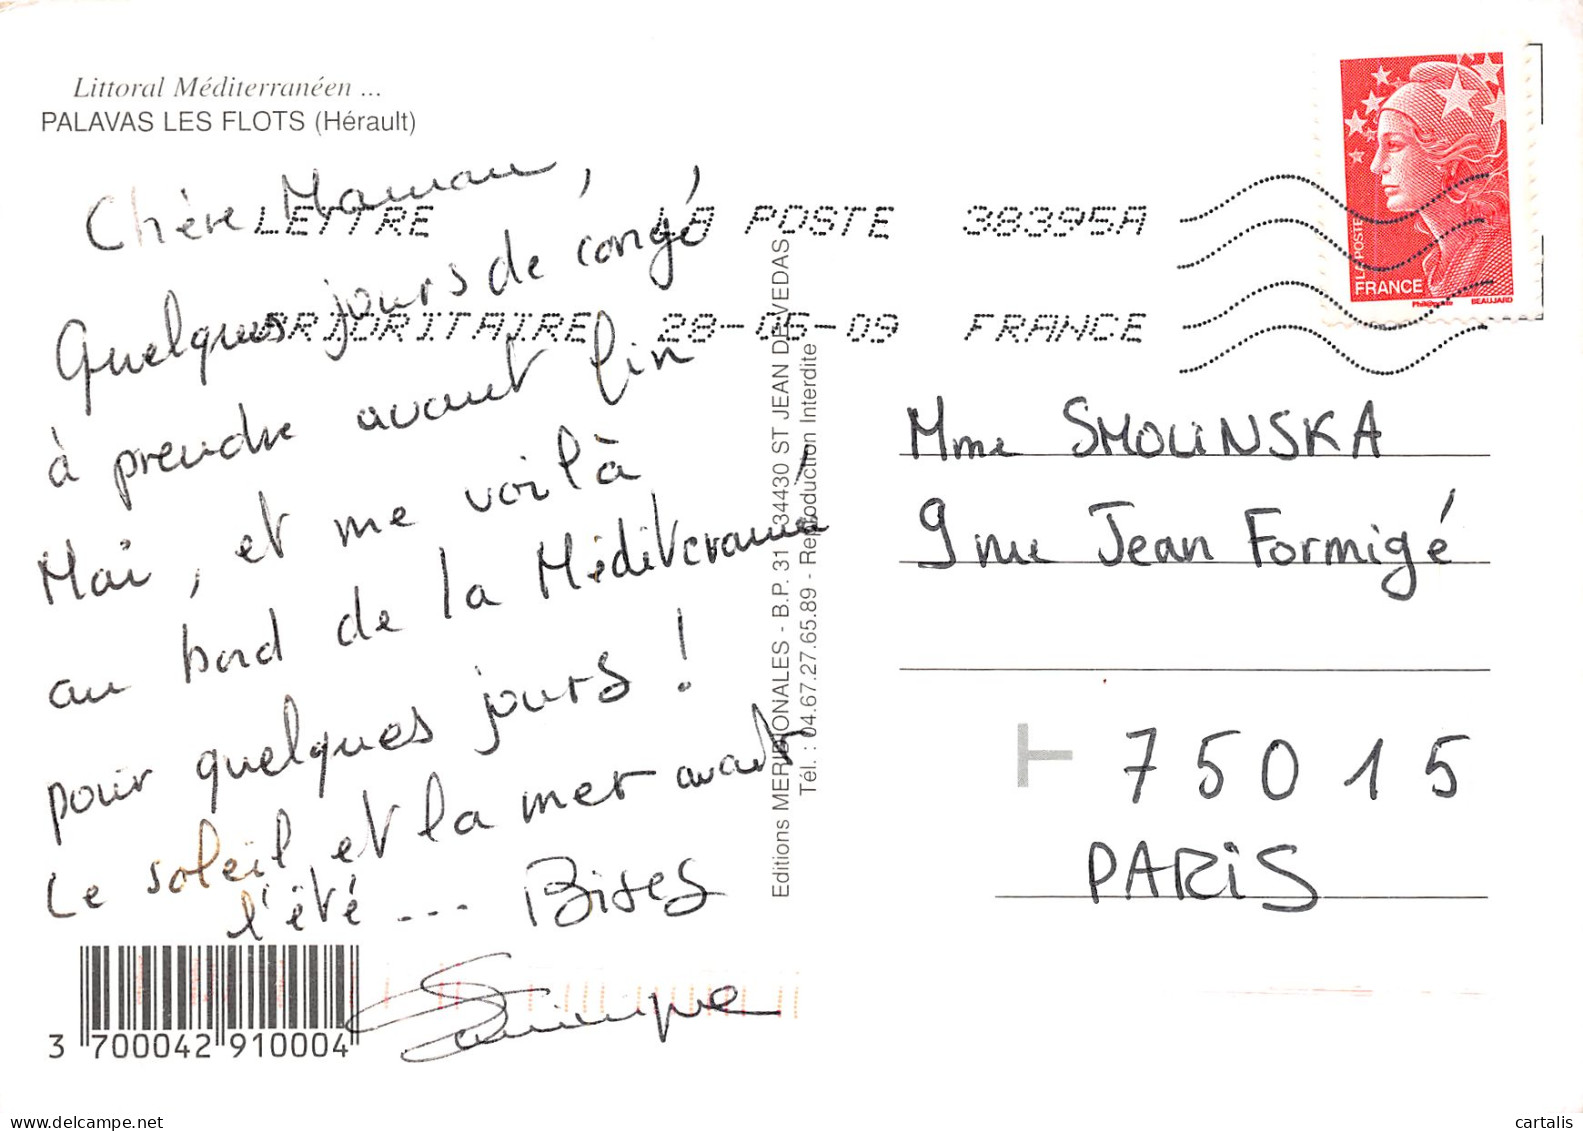 Littoral Méditerranéen ...
PALAVAS LES FLOTS (Hérault)
Chère Maman,
Quelques jours de congé
à prendre avant fin
Mai, et me voilà
au bord de la Méditerranée
pour quelques jours !
Le soleil et la mer avant
l'été ... Bises
LETTRE LA POSTE 38395A
PRIORITAIRE 28-05-09 FRANCE
LA POSTE
FRANCE
Phil@poste BEAUJARD
Editions MERIDIONALES - B.P. 31 - 34430 ST JEAN DE VEDAS
Tél. : 04.67.27.65.89 - Reproduction Interdite
Mme SMOLINSKA
9 rue Jean Formigé
T 75015
PARIS
3 700042 910004
cartalis
www.delcampe.net